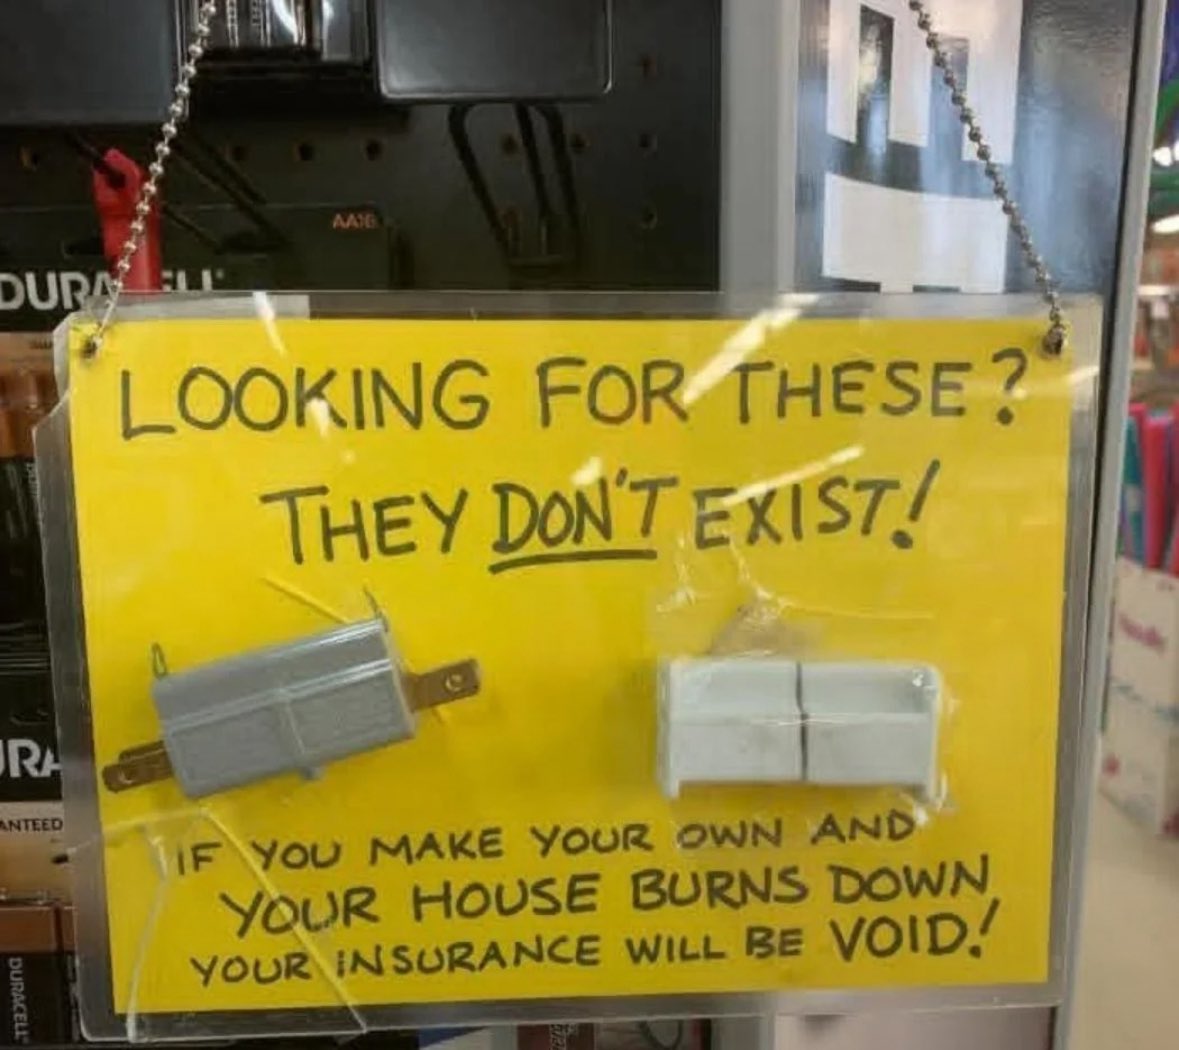 AA16
DURACELL
LOOKING FOR THESE?
THEY DON'T EXIST!
IF YOU MAKE YOUR OWN AND
YOUR HOUSE BURNS DOWN
YOUR INSURANCE WILL BE VOID!
DURACELL